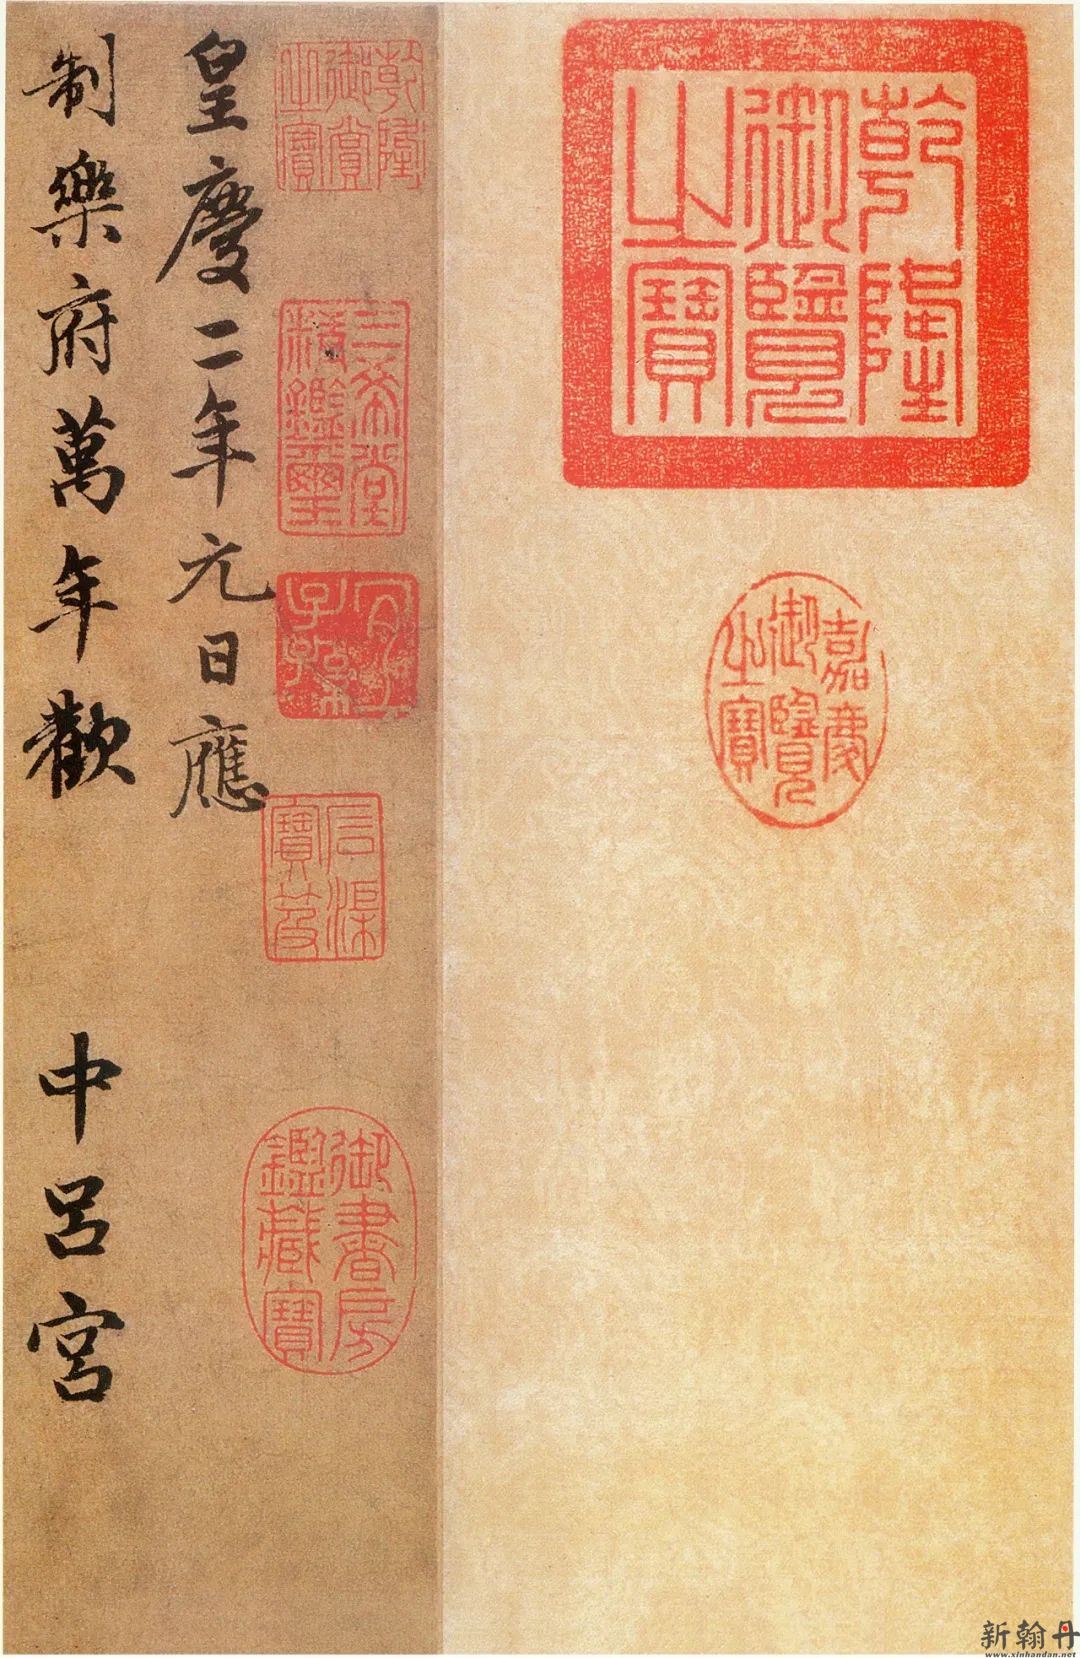 乾隆御覽之寶
嘉慶御覽之寶
乾隆御賞之寶
三希堂精鑑璽
宜子孫
石渠寶笈
御書房鑑藏寶
皇慶二年元日應
制樂府萬年歡 中呂宮
新翰丹
www.xinhandan.net